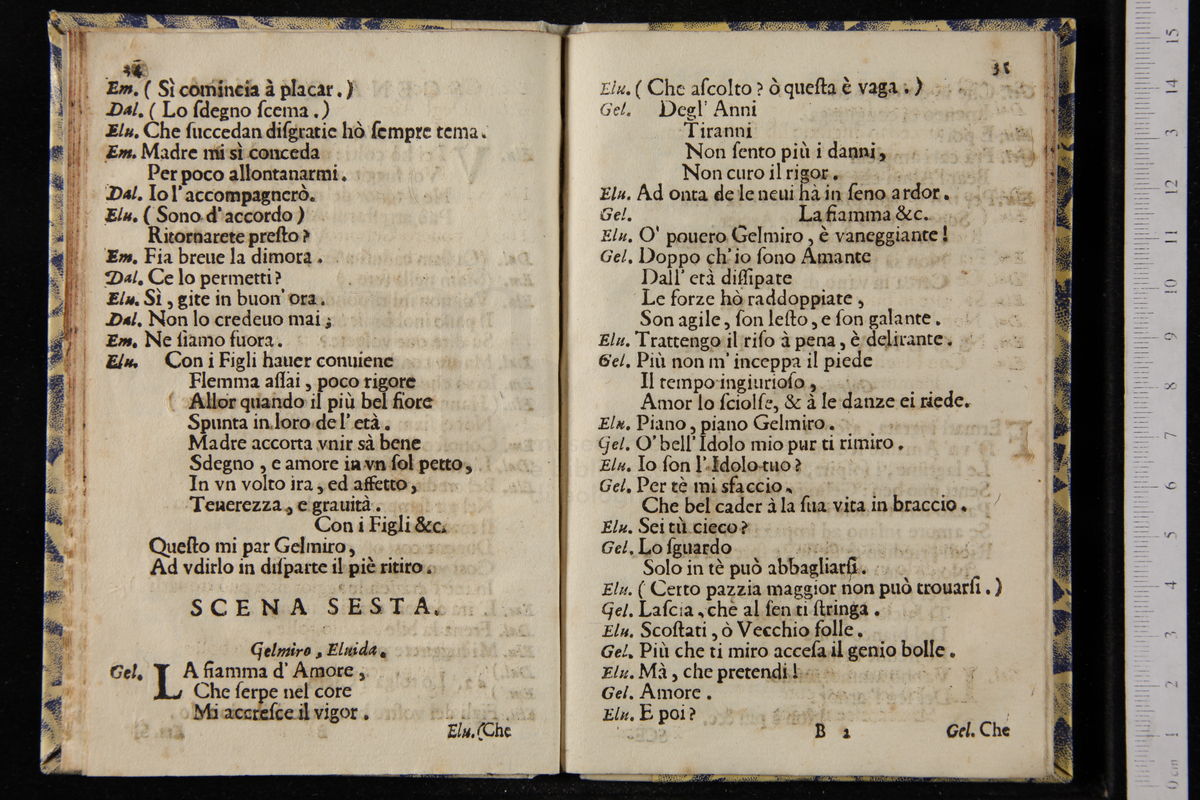 34
Em. ( Sì comincia à placar . )
Dal. ( Lo ſdegno ſcema . )
Elu. Che ſuccedan diſgratie hò ſempre tema .
Em. Madre mi sì conceda
Per poco allontanarmi .
Dal. Io l'accompagnerò.
Elu. ( Sono d'accordo )
Ritornarete preſto ?
Em. Fia breue la dimora .
Dal. Ce lo permetti ?
Elu. Sì , gite in buon'ora .
Dal. Non lo credeuo mai ;
Em. Ne ſiamo fuora .
Elu. Con i Figli hauer conuiene
Flemma aſſai , poco rigore
Allor quando il più bel fiore
Spunta in loro de l'età .
Madre accorta vnir sà bene
Sdegno , e amore in vn ſol petto ,
In vn volto ira , ed affetto ,
Tenerezza , e grauità .
Con i Figli &c.
Queſto mi par Gelmiro ,
Ad vdirlo in diſparte il piè ritiro .
SCENA SESTA.
Gelmiro , Eluida .
Gel. LA fiamma d'Amore ,
Che ſerpe nel core
Mi accreſce il vigor .
Elu. (Che
35
Elu. ( Che aſcolto ? ò queſta è vaga . )
Gel. Degl' Anni
Tiranni
Non ſento più i danni ,
Non curo il rigor .
Elu. Ad onta de le neui hà in ſeno ardor .
Gel. La fiamma &c.
Elu. O' pouero Gelmiro , è vaneggiante !
Gel. Doppo ch'io ſono Amante
Dall' età diſſipate
Le forze hò raddoppiate ,
Son agile , ſon leſto , e ſon galante .
Elu. Trattengo il riſo à pena , è delirante .
Gel. Più non m'inceppa il piede
Il tempo ingiurioſo ,
Amor lo ſciolſe, & à le danze ei riede.
Elu. Piano , piano Gelmiro .
Gel. O' bell'Idolo mio pur ti rimiro .
Elu. Io ſon l'Idolo tuo ?
Gel. Per tè mi sfaccio .
Che bel cader à la ſua vita in braccio .
Elu. Sei tù cieco ?
Gel. Lo ſguardo
Solo in tè può abbagliarſi .
Elu. ( Certo pazzia maggior non può trouarſi . )
Gel. Laſcia , che al ſen ti ſtringa .
Elu. Scoſtati , ò Vecchio folle .
Gel. Più che ti miro acceſa il genio bolle .
Elu. Mà , che pretendi !
Gel. Amore .
Elu. E poi ?
B 2
Gel. Che